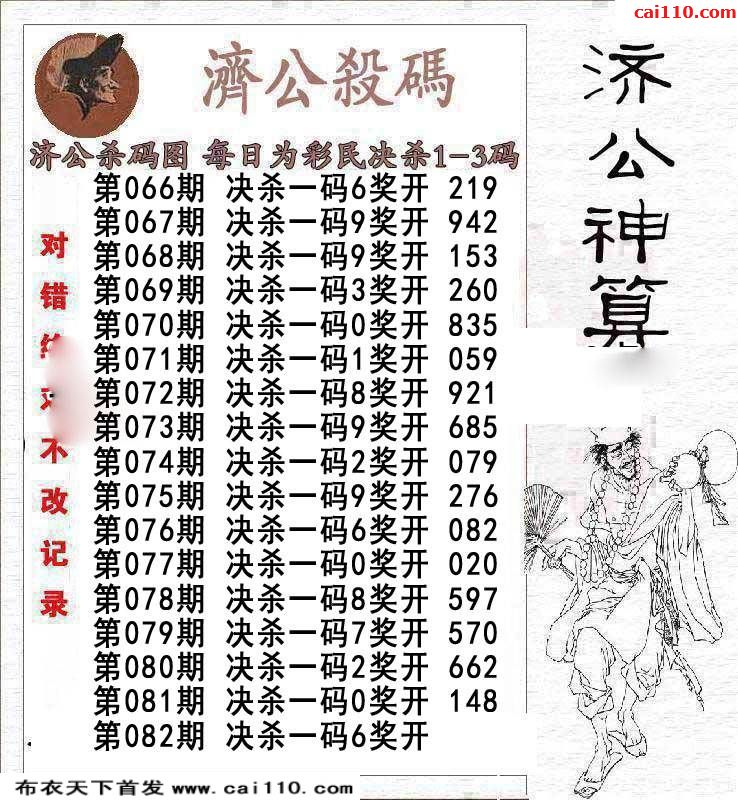 cai110.com
濟公殺碼
济公杀码图 每日为彩民决杀1-3码
第066期 决杀一码6奖开 219
第067期 决杀一码9奖开 942
第068期 决杀一码9奖开 153
第069期 决杀一码3奖开 260
第070期 决杀一码0奖开 835
第071期 决杀一码1奖开 059
第072期 决杀一码8奖开 921
第073期 决杀一码9奖开 685
第074期 决杀一码2奖开 079
第075期 决杀一码9奖开 276
第076期 决杀一码6奖开 082
第077期 决杀一码0奖开 020
第078期 决杀一码8奖开 597
第079期 决杀一码7奖开 570
第080期 决杀一码2奖开 662
第081期 决杀一码0奖开 148
第082期 决杀一码6奖开
对错不改记录
济公神算
布衣天下首发 www.cai110.com